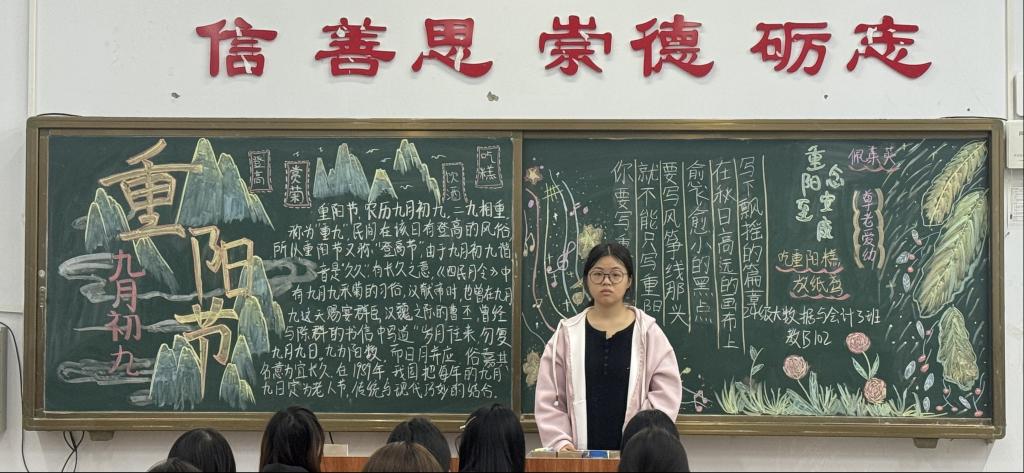 信善思 崇德 砺志
重阳节
九月初九
登高
赏菊
饮酒
吃糕
重阳节,农历九月初九,二九相重,
称为"重九",民间在该日有登高的风俗
所以重阳节又称"登高节",由于九月初九谐
音是"久久",为长久之意,《四民月令》中
有九月九采菊的习俗,汉献帝时,也曾在九月
九这天赐宴群臣,汉魏之际的曹丕,曾经
与陈群的书信中写道"岁月往来,勿复
九月九日,九为阳数,而日月并应,俗嘉其
名"意为宜长久,在1989年,我国把每年的九月
九日定为老人节,传统与现代巧妙的结合.
写下飘摇的篇章
在秋日高远的画布上
愈飞愈小的黑点
要写风筝线那一头
就不能只写重阳
你要写
重阳至
念中庭
佩茱萸
尊老爱幼
吃重阳糕
放纸鸢
级大数据与会计3班
教B102